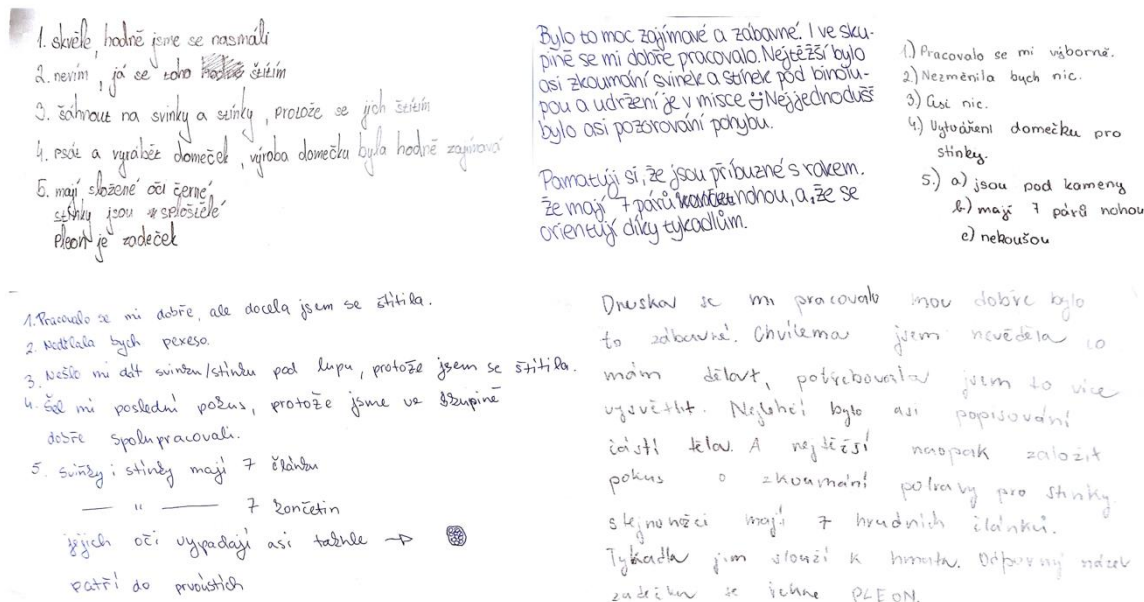 1. skvěle, hodně jsme se nasmáli
2. nevím, já se toho štítím
3. šáhnout na svinky a stínky, protože se jich štítím
4. psát a vyrábět domeček, výroba domečku byla hodně zajímavá
5. mají složené oči černé,
stínky jsou zploštělé
Pleon je zadeček
Bylo to moc zajímavé a zábavné. I ve sku-
pině se mi dobře pracovalo. Nejtěžší bylo
asi zkoumání svinek a stínek pod binolu-
pou a udržení je v misce Nejjednodušš
bylo asi pozorování pohybu.
Pamatuji si, že jsou příbuzné s rakem.
že mají 7 párů nohou, a, že se
orientují díky tykadlům.
1.) Pracovalo se mi výborně.
2) Nezměnila bych nic.
3) Asi nic.
4.) Vytváření domečku pro
stínky.
5.) a) jsou pod kameny
b) mají 7 párů nohou
c) nekoušou
1. Pracovalo se mi dobře, ale docela jsem se štítila.
2. Nedělala bych pexeso.
3. Nešlo mi dát svinku/stínku pod lupu, protože jsem se štítila.
4. Šel mi poslední pokus, protože jsme ve skupině
dobře spolupracovali.
5. svinky i stínky mají 7 článků
— " — 7 končetin
jejich oči vypadají asi takhle →
patří do prvoústích
Dneska se mi pracovalo moc dobře bylo
to zábavné. Chvilema jsem nevěděla co
mám dělat, potřebovala jsem to více
vysvětlit. Nejlehčí bylo asi popisování
částí těla. A nejtěžší naopak založit
pokus o zkoumání potravy pro stínky.
stejnonožci mají 7 hrudních článků.
Tykadla jim slouží k hmatu. Odborný název
zadečku se jehne PLEON.